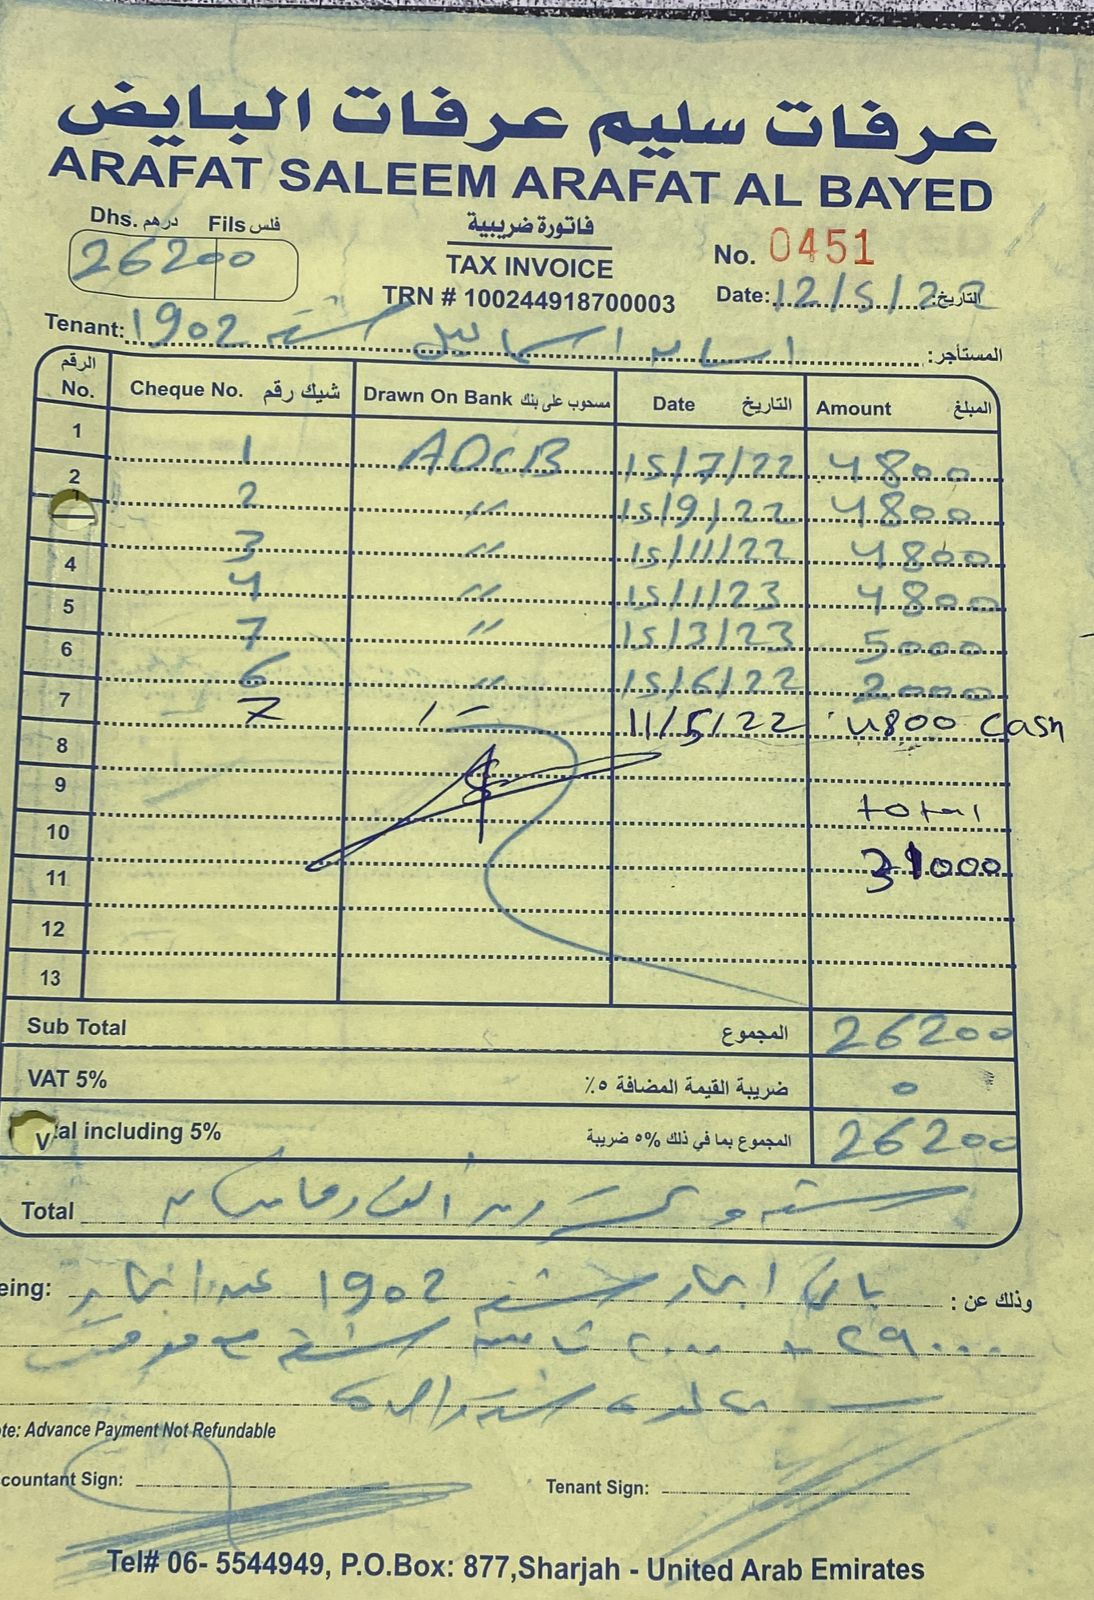 عرفات سليم عرفات البايض
ARAFAT SALEEM ARAFAT AL BAYED
Dhs. درهم Fils فلس
26200 00
فاتورة ضريبية
TAX INVOICE
TRN # 100244918700003
No. 0451
Date: 12/5/22 التاريخ:
Tenant: 1902 شقة اسماعيل المستأجر:
الرقم No. Cheque No. شيك رقم Drawn On Bank مسحوب على بنك Date التاريخ Amount المبلغ
1 1 ADCB 15/7/22 4800
2 2 〃 15/9/22 4800
3 〃 15/11/22 4800
4 4 〃 15/1/23 4800
5 7 〃 15/3/23 5000
6 6 〃 15/6/22 2000
7 7 11/5/22 4800 Cash
8
9 total
10
11 31000
12
13
Sub Total المجموع 26200
VAT 5% ضريبة القيمة المضافة ٥٪ 0
al including 5% المجموع بما في ذلك ٥% ضريبة 26200
Total ستة و عشرون الف و مائتان
eing: ايجار شقة 1902 وذلك عن :
٢٩٠٠٠ + ٢٠٠٠ شقة
te: Advance Payment Not Refundable
countant Sign: Tenant Sign:
Tel# 06- 5544949, P.O.Box: 877,Sharjah - United Arab Emirates